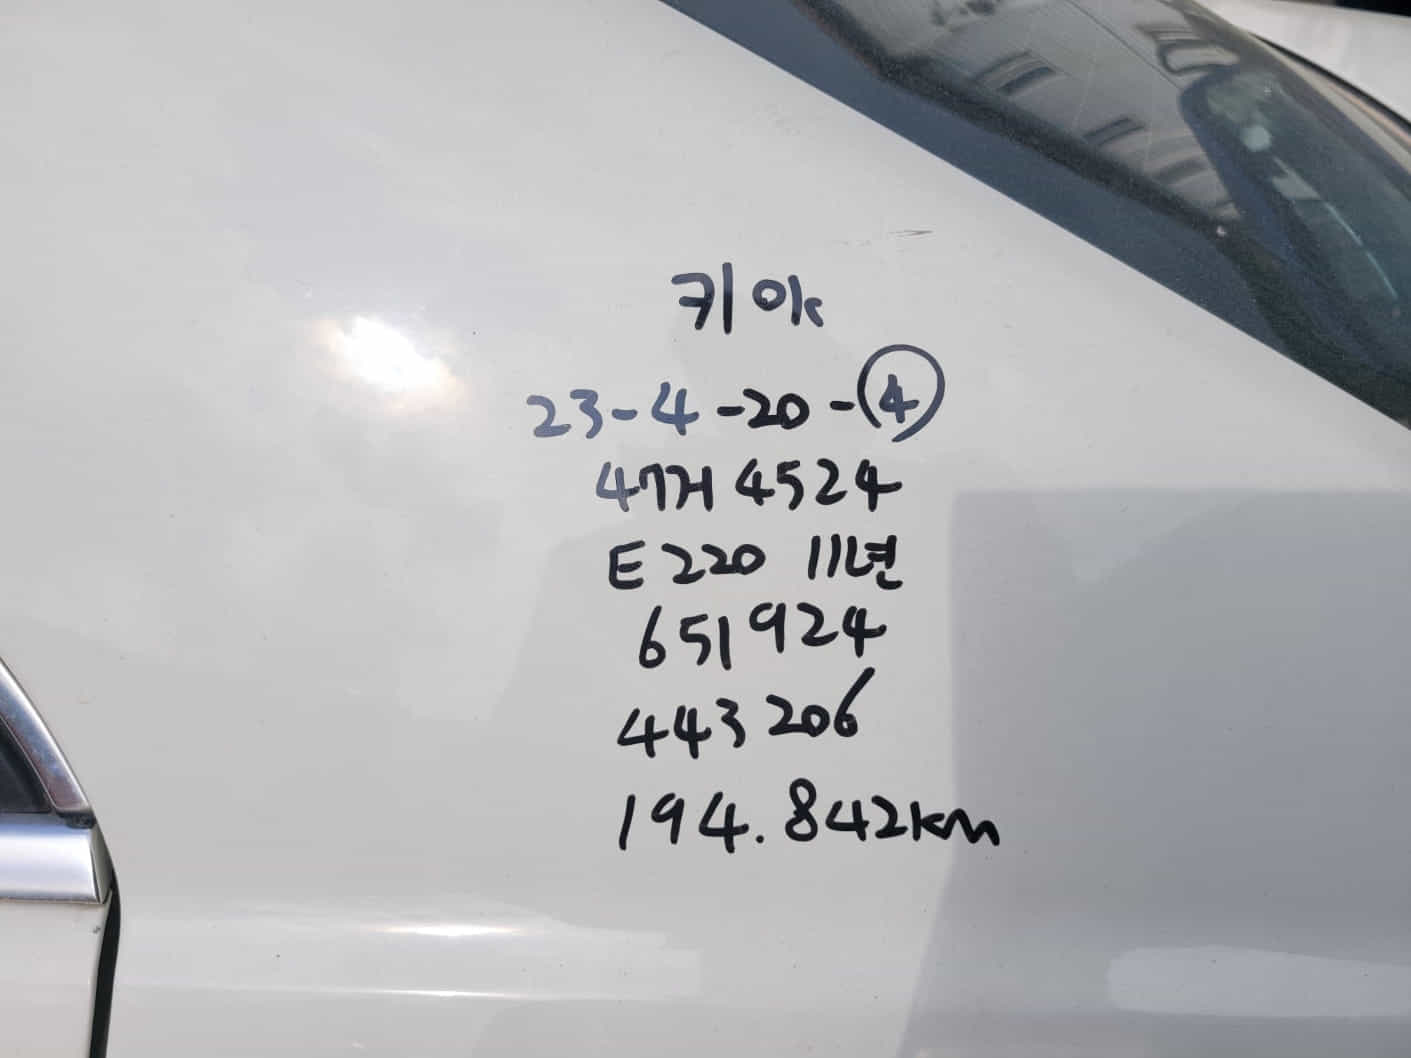 키 ok
23-4-20-④
47거 4524
E220 11년
651924
443206
194.842km